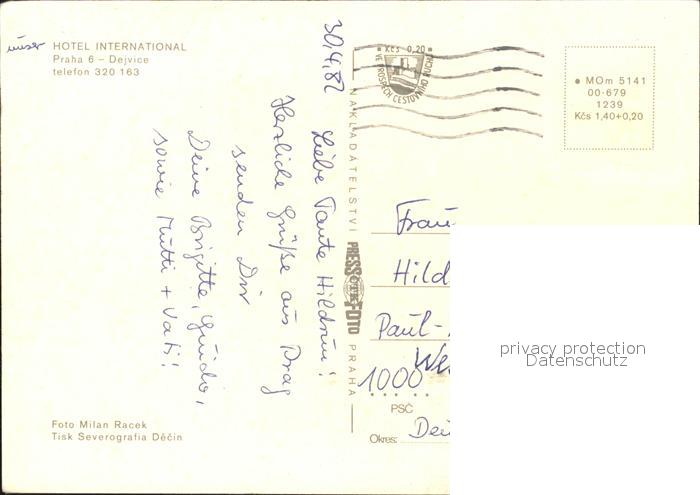 unser HOTEL INTERNATIONAL
Praha 6 – Dejvice
telefon 320 163
30.4.82
Liebe Tante Hildrun!
Herzliche Grüße aus Prag
senden Dir
Deine Brigitte, Guido,
sowie Mutti + Vati!
Foto Milan Racek
Tisk Severografia Děčín
NAKLADATELSTVÍ PRESSFOTO PRAHA
Kčs 0,20
VE PROSPĚCH CESTOVNÍHO RUCHU
MOm 5141
00-679
1239
Kčs 1,40+0,20
Frau
Hild
Paul-
1000
PSČ
Okres:
privacy protection
Datenschutz